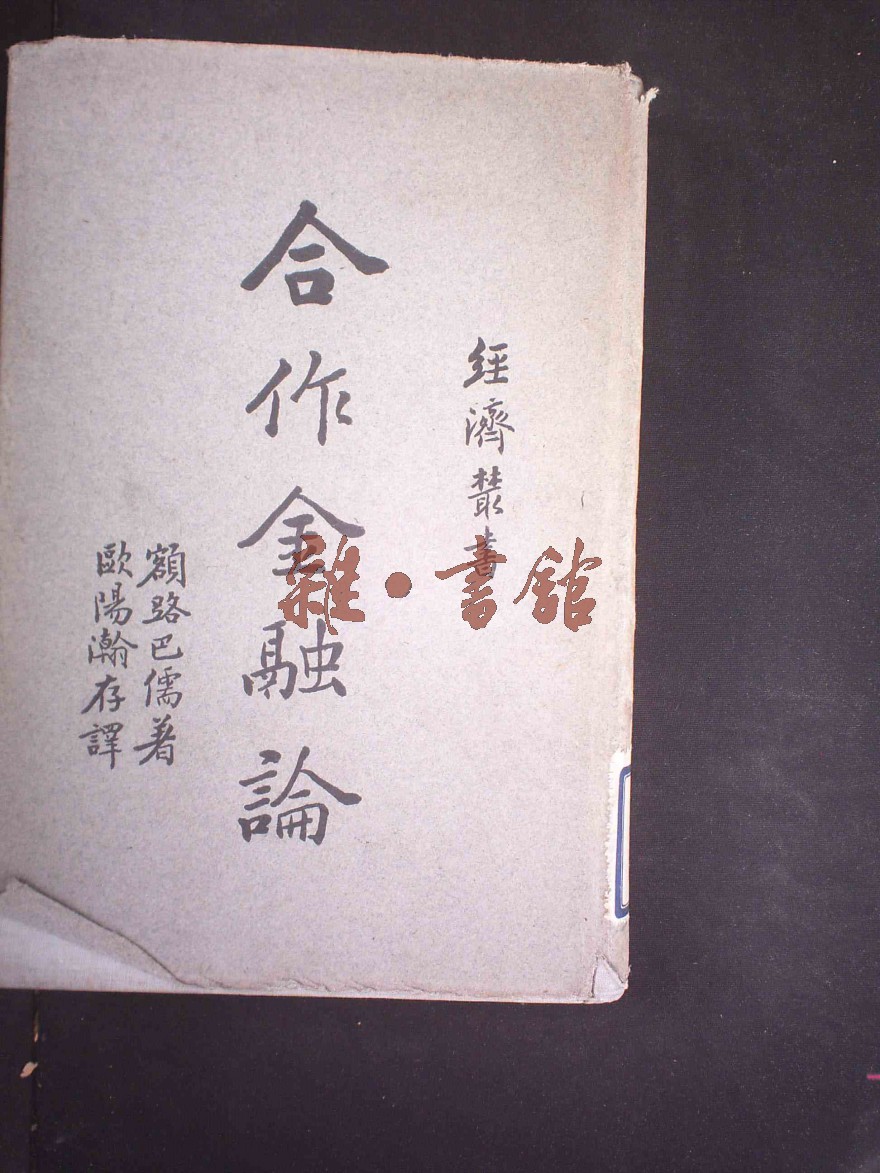 經濟叢書
合作金融論
額路巴儒著
歐陽瀚存譯
雜·書館